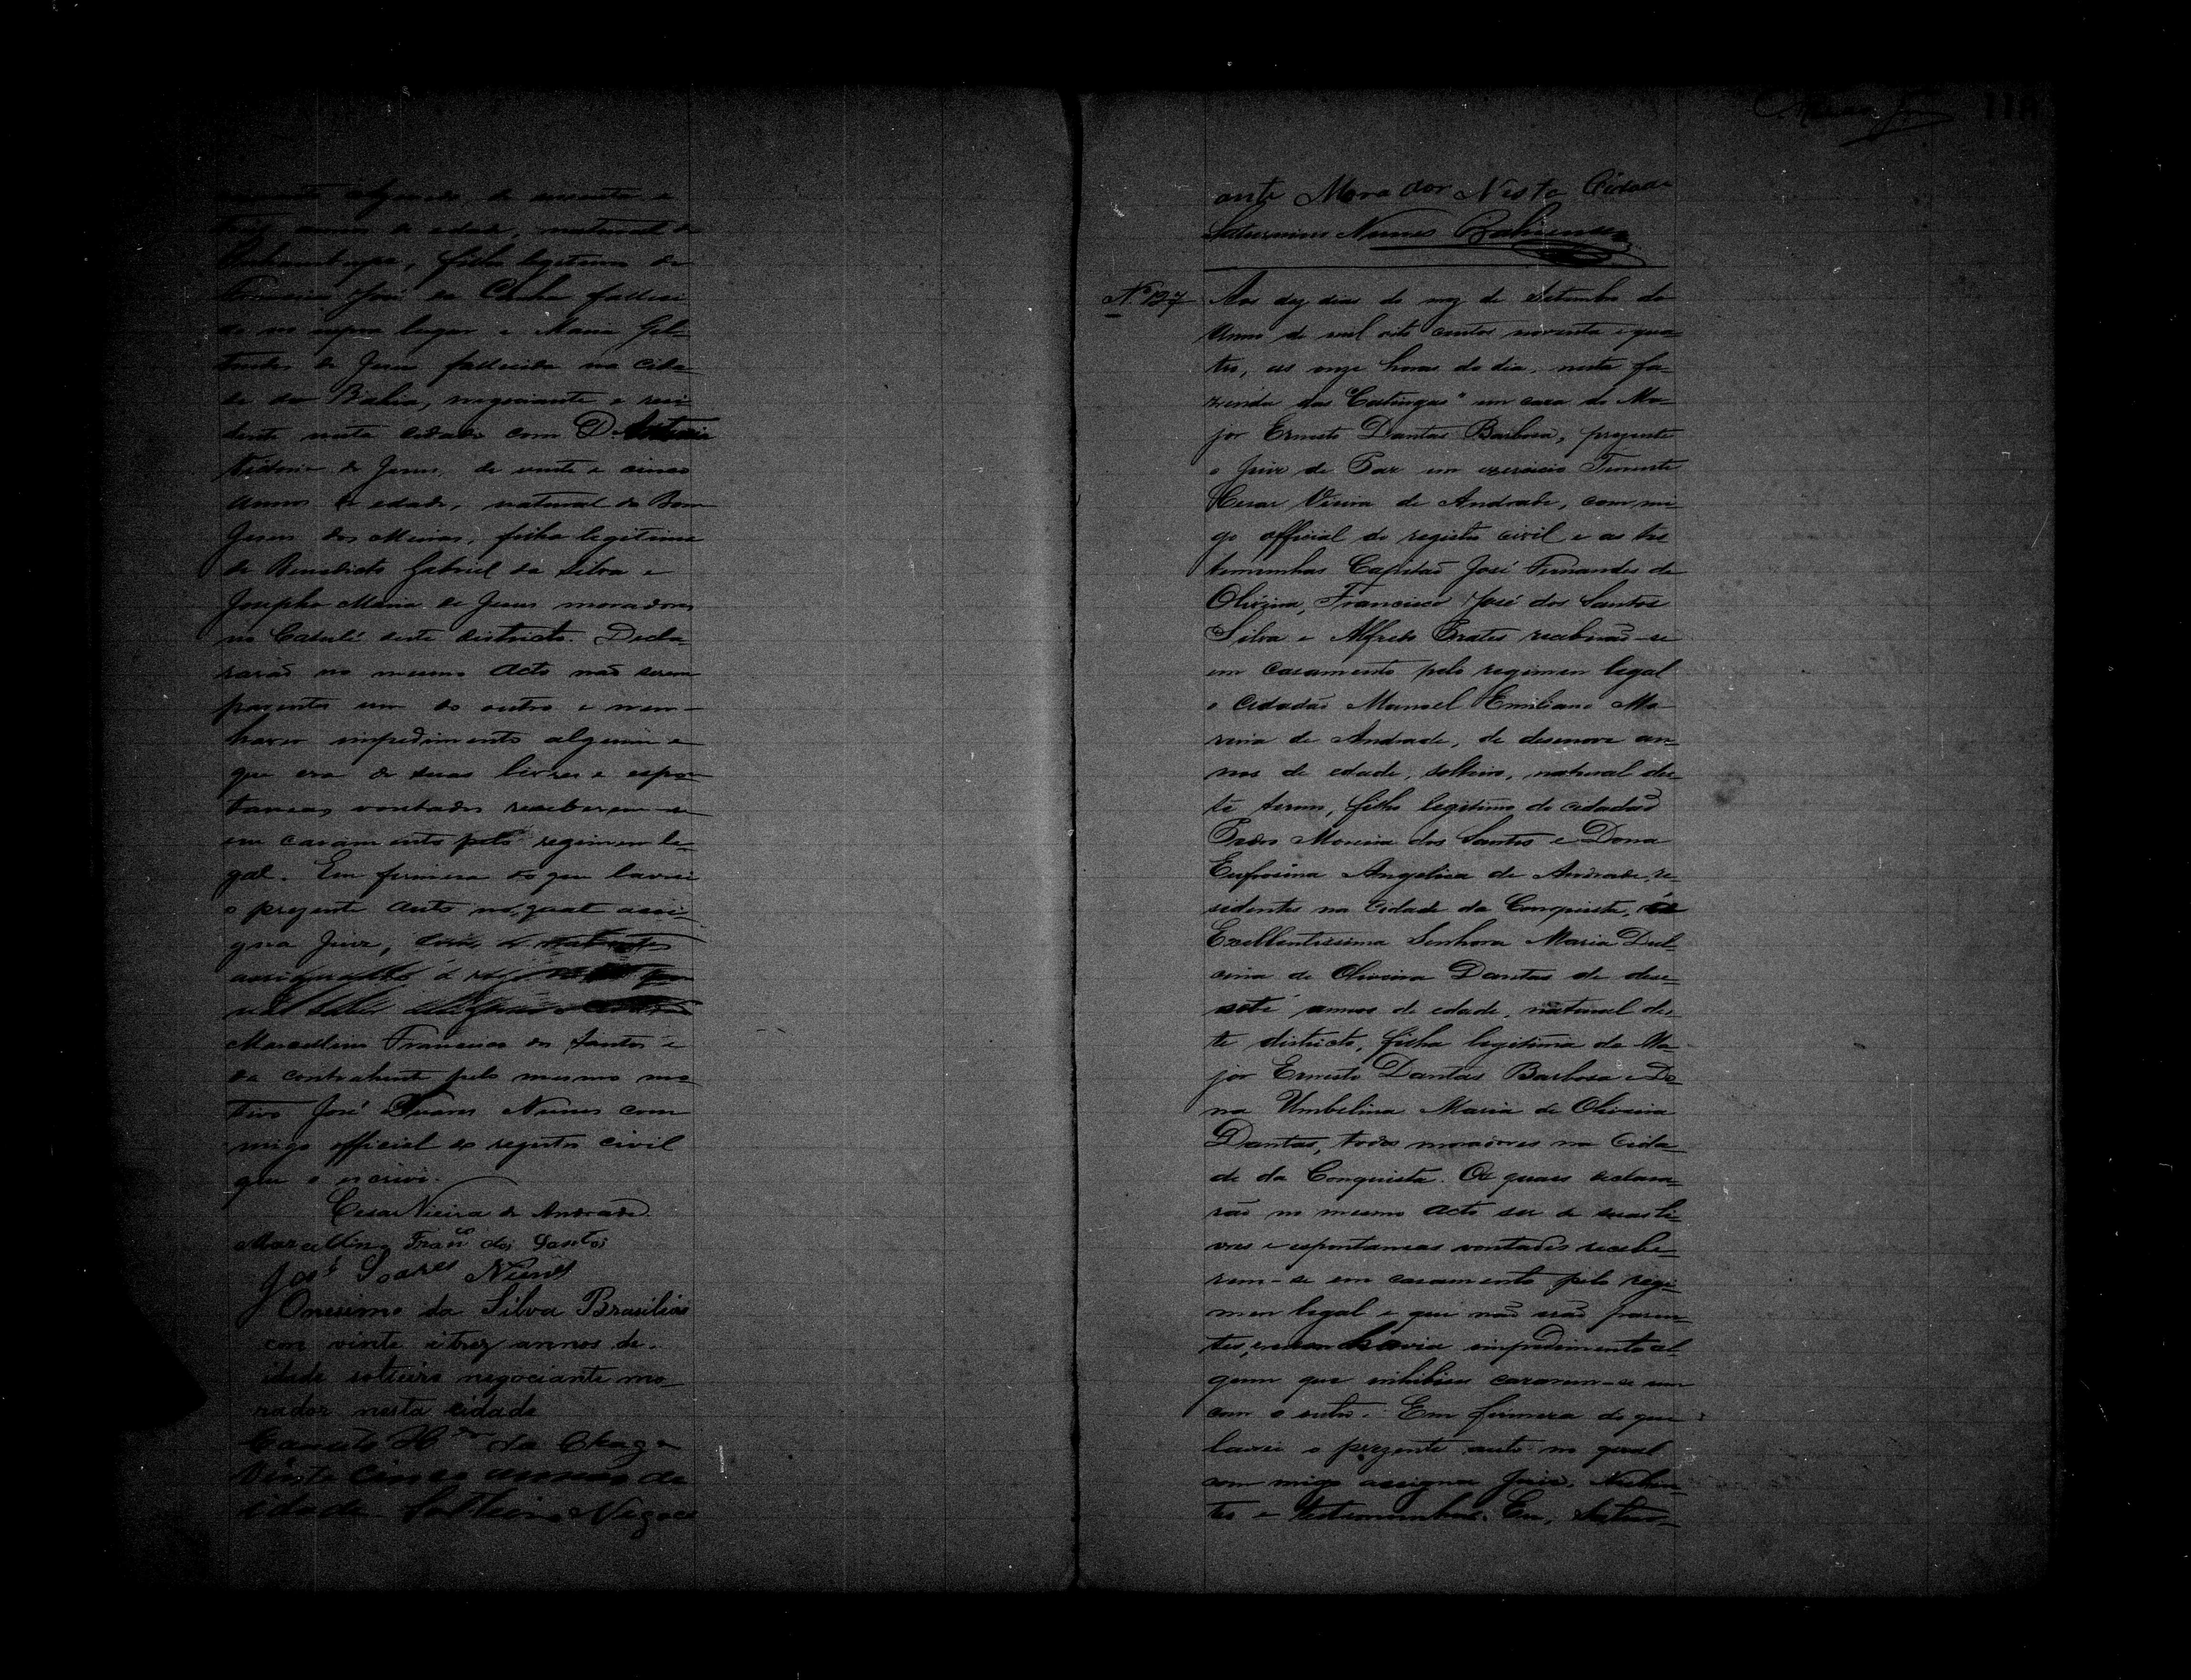 de edade, natural de
filho legitimo de
José da Cunha falleci
do no supra lugar e Maria Gel-
trudes de Jesus fallecida na cida-
de da Bahia, negociante e resi-
dente nesta cidade com D.
de Jesus, de vinte e cinco
annos de edade, natural do Bom
Jesus dos Meiras, filha legitima
de Benedicto Gabriel da Silva e
Josepha Maria de Jesus moradores
no deste districto. Decla-
rarão no mesmo acto não serem
parentes um do outro e nem
haver impedimento algum e
que era de suas livres e espon
taneas vontades receberem-se
em casamento pelo regimen le-
gal. Em firmesa do que lavrei
o prezente auto no qual assi-
gna Juiz,
Marcellino Francisco dos Santos e
da contrahente pelo mesmo mo
tivo José Soares Nunes com
migo official do registro civil
que o escrivi.
Cesar Vieira de Andrade.
Marcellino Franco dos Santos
José Soares Nunes
Onesimo da Silva Brasilio
com vinte e trez annos de
idade solteiro negociante mo-
rador nesta cidade
vinte cinco annos de
idade Solteiro Negoci
ante Morador Nesta Cidade
Saturnino Nunes Bahiense
N. 127 Aos dez dias do mez de Setembro do
anno de mil oito centos noventa e qua-
tro, as onze horas do dia, nesta fa-
zenda das "Catingas" em casa do Ma-
jor Ernesto Dantas Barbosa, prezente
o Juiz de Paz em exercicio Tenente
Cesar Vieira de Andrade, commi-
go official do registro civil e as tes
temunhas Capitão José Fernandes de
Oliveira, Francisco José dos Santos
Silva e Alfredo Prates receberão-se
em casamento pelo regimen legal
o cidadão Manoel Emiliano Mo-
reira de Andrade, de desenove an-
nos de edade, solteiro, natural des-
te termo, filho legitimo do cidadão
Pedro Moreira dos Santos e Dona
Eufrosina Angelica de Andrade, re-
sidentes na Cidade da Conquista,
Excellentissima Senhora Maria Dul-
cina de Oliveira Dantas de dese-
sete annos de edade, natural des-
te districto, filha legitima do Ma-
jor Ernesto Dantas Barbosa e Do-
na Umbelina Maria de Oliveira
Dantas, todos moradores na Cida-
de da Conquista. Os quaes declara-
rão no mesmo acto ser de suas li-
vres e espontaneas vontades recebe-
rem-se em casamento pelo regi-
men legal e que não erão paren-
tes, e nem havia impedimento al-
gum que inhibisse casarem-se um
com o outro. Em firmeza do que
lavrei o prezente auto no qual
com migo assigna Juiz, Nuben-
tes e testemunhas. Eu, Satur-